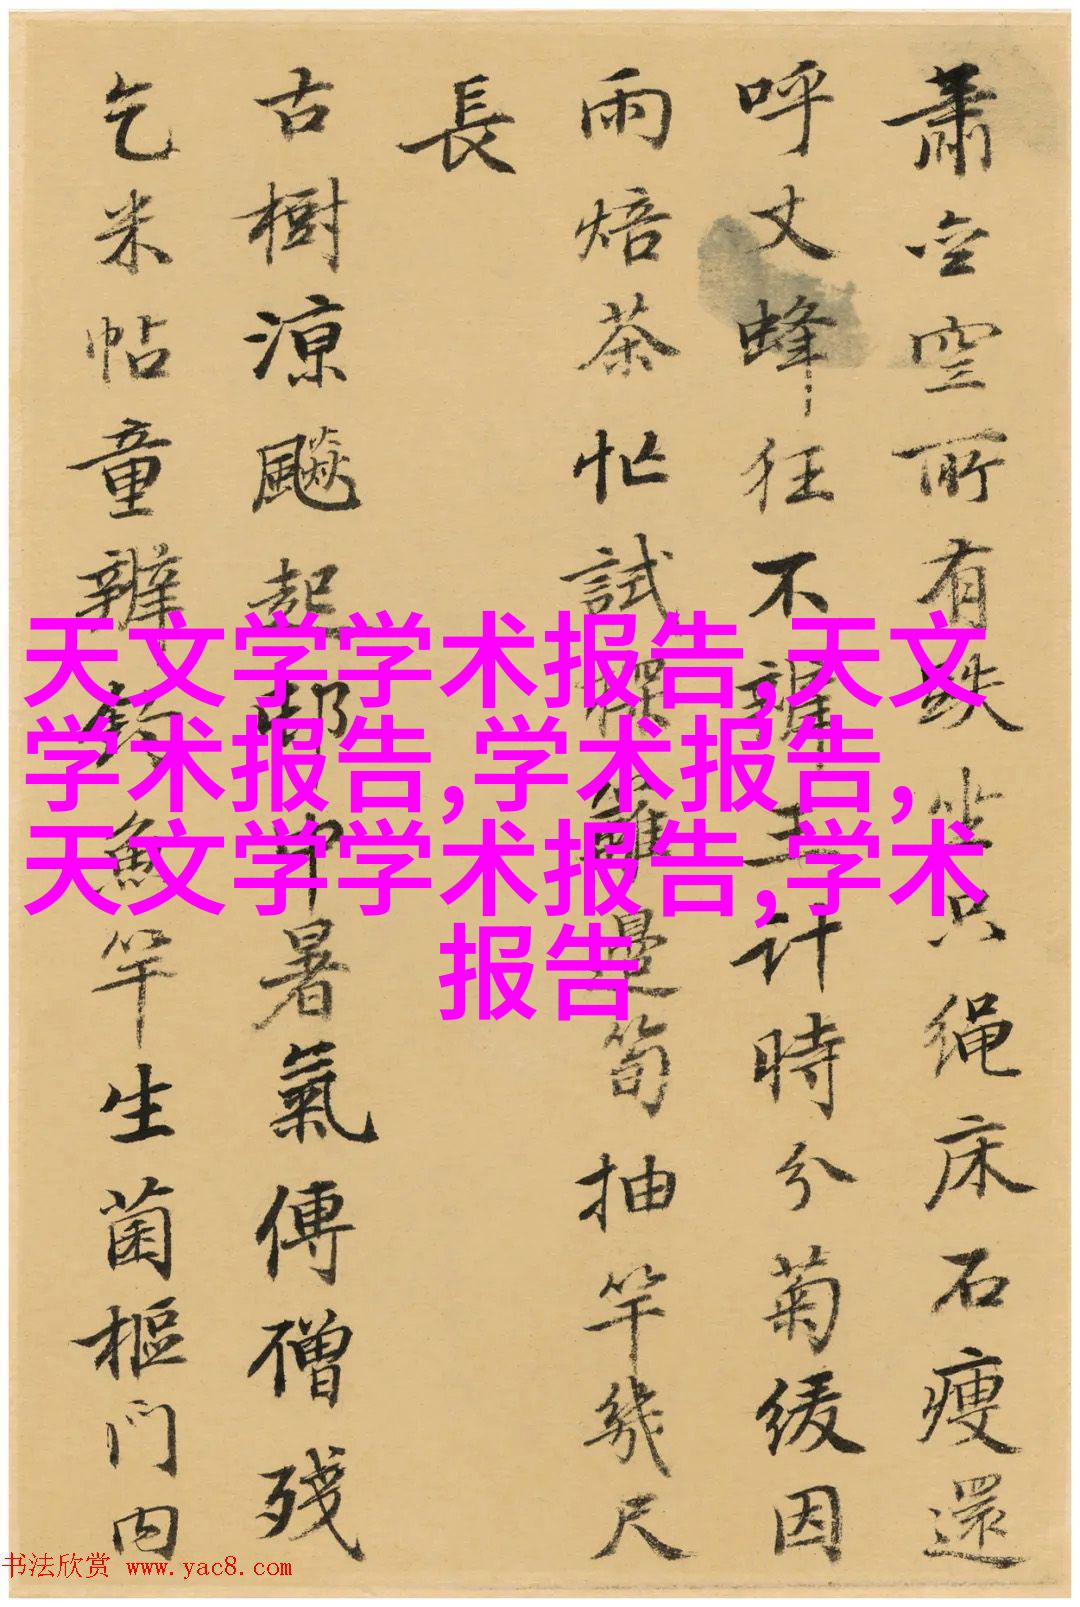 蕭室空所有趺坐只绳床石瘦還
呼丈蜂狂不避主计時分菊缓因
雨焙茶忙試種離邊筍抽竿幾尺
長
古樹涼飈起都中暑氣傳僧殘
乞米帖童辨釣魚竿生菌樞門内
天文学学术报告,天文
学术报告,学术报告,
天文学学术报告,学术
报告
书法欣赏 www.yac8.com